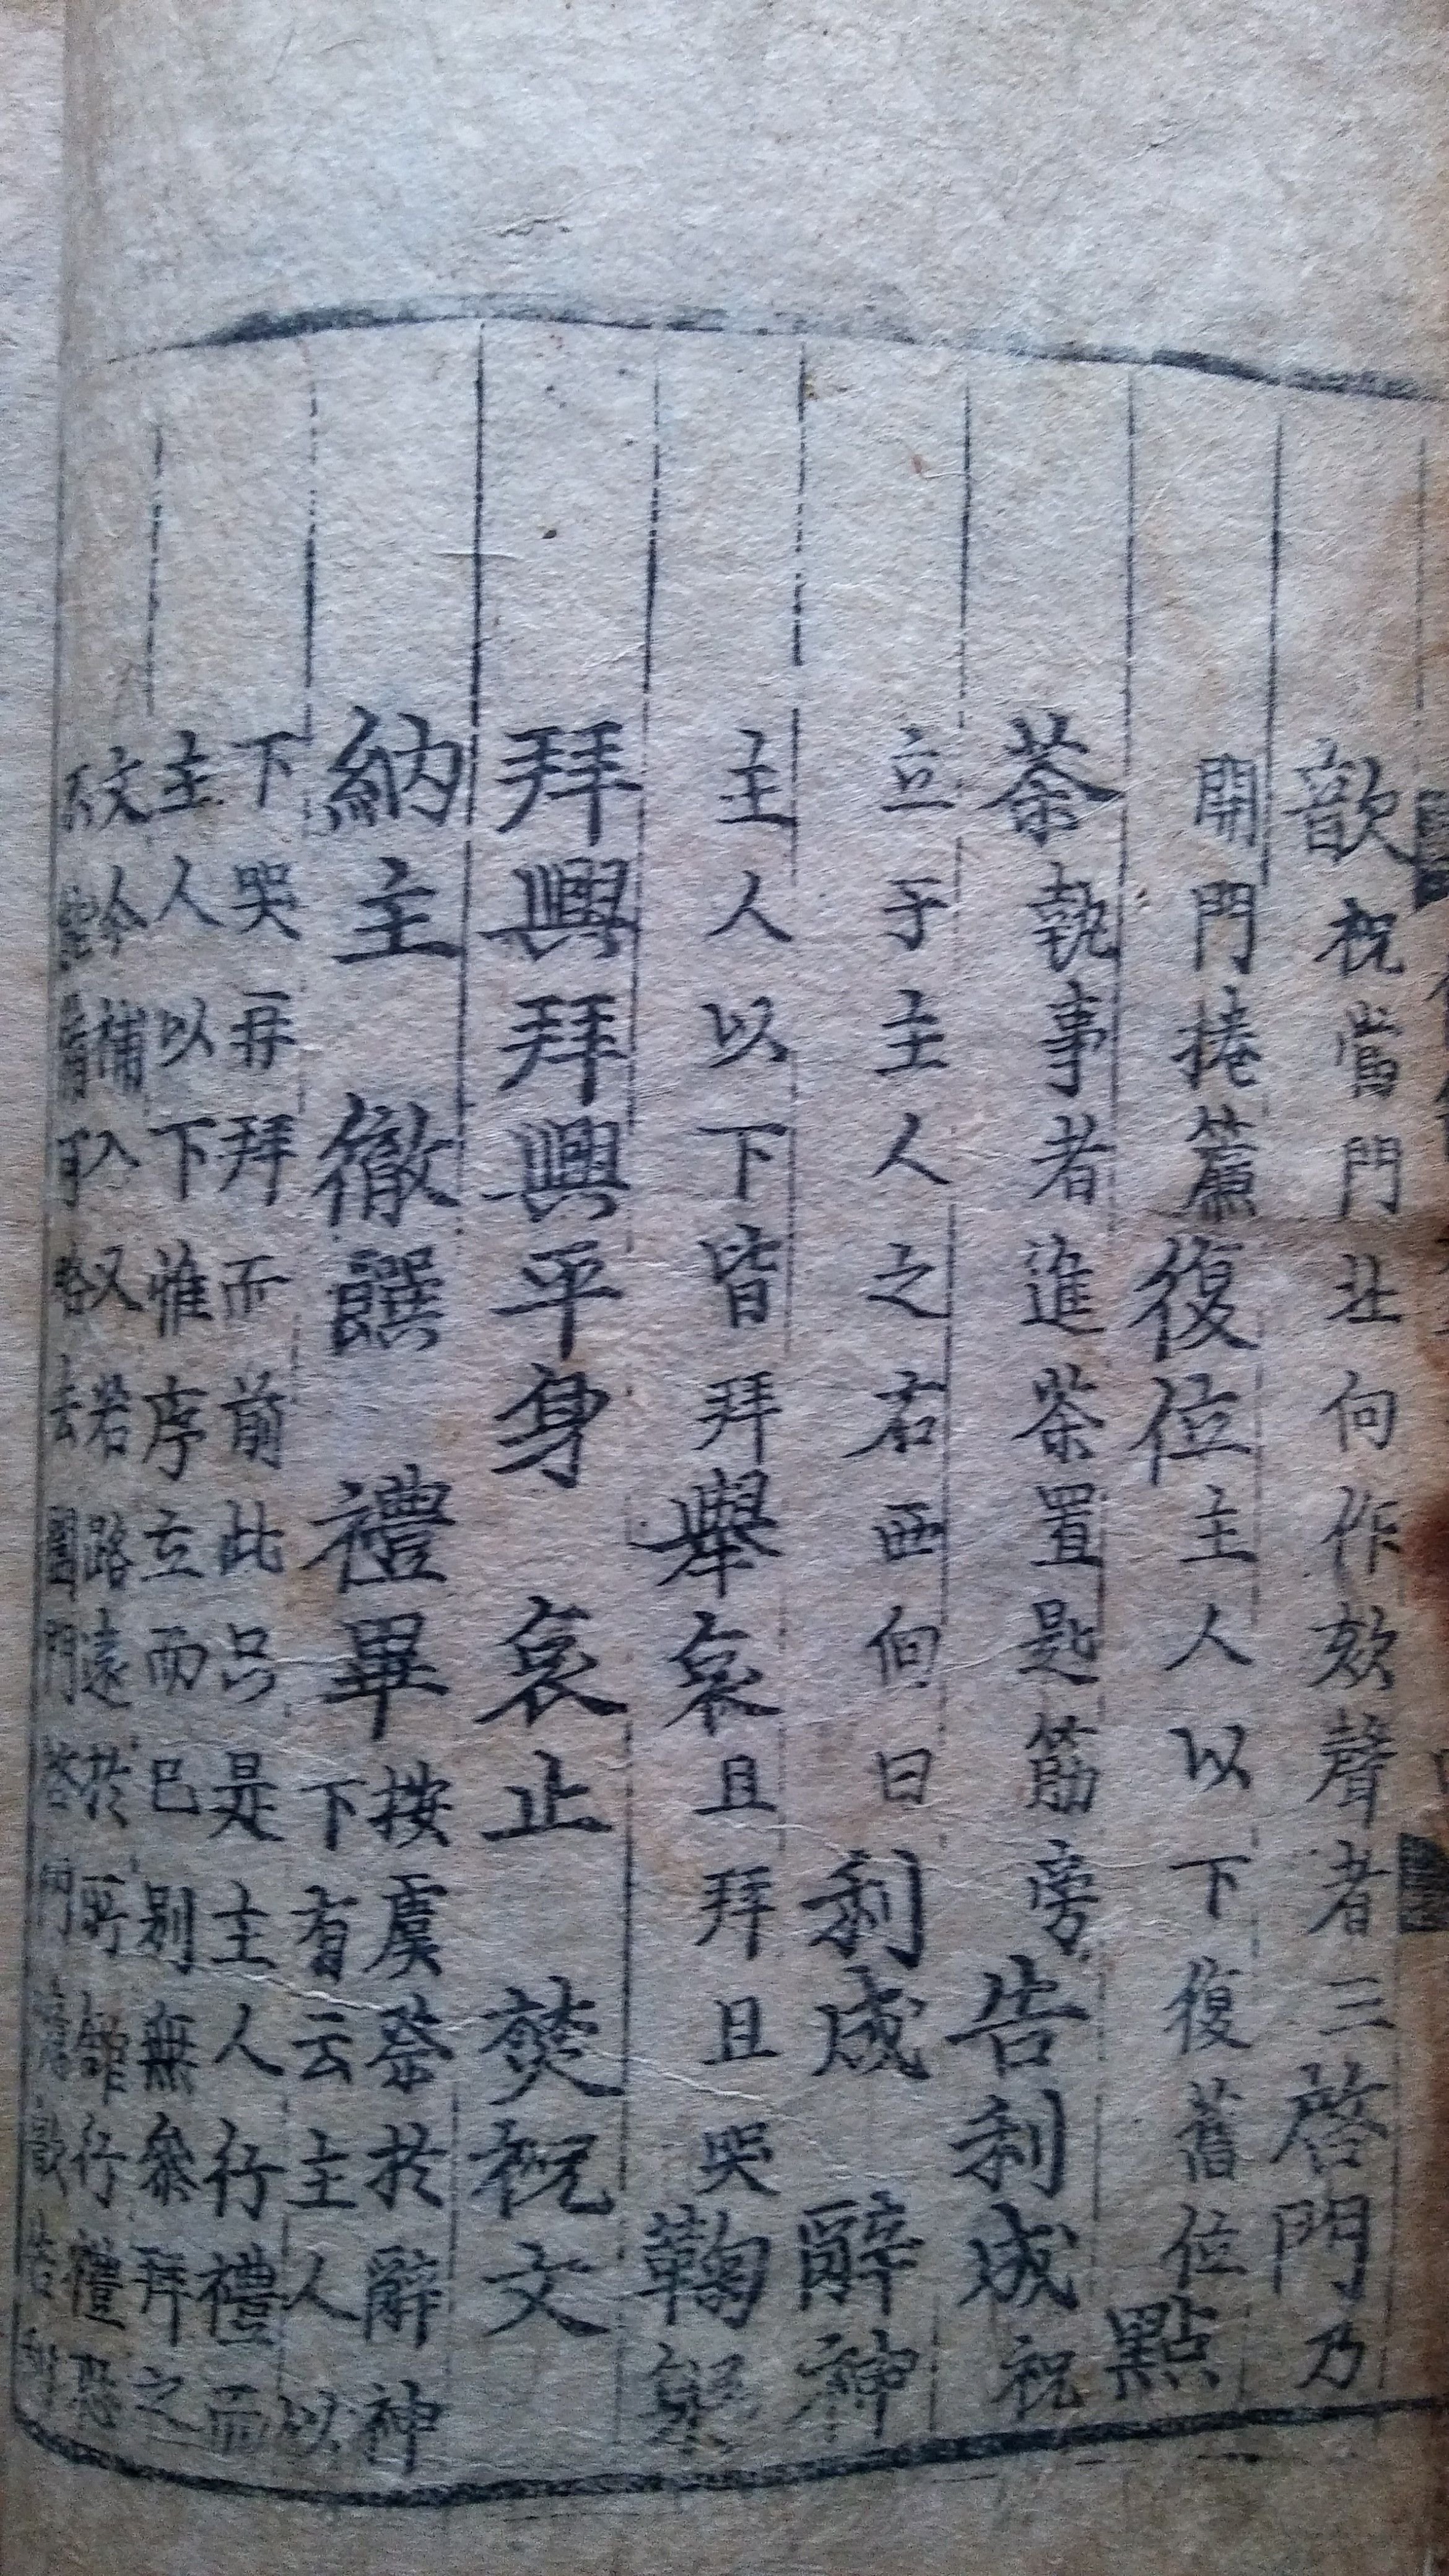 歆祝當門北向作欬聲者三啓門乃
開門捲簾復位主人以下復舊位點
茶執事者進茶置匙筯旁告利成祝
立于主人之右西向曰利成辭神
主人以下皆拜擧哀且拜且哭鞠躬
拜興拜興平身哀止焚祝文
納主徹饌禮畢按虞祭於辭神
下有云主人以
下哭再拜而前此只是主人行禮而
主人以下惟序立而已別無參拜之
文今補入又若路遠於所館行禮恐